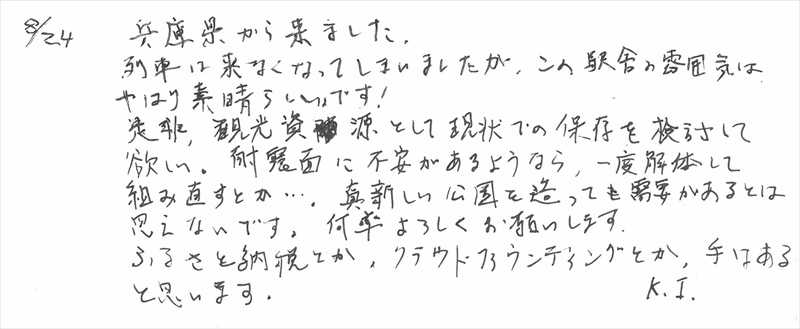 8/24 兵庫県から来ました.
列車は来なくなってしまいましたが、この駅舎の雰囲気は
やはり素晴らしいです!
是非、観光資源として現状での保存を検討して
欲しい。耐震面に不安があるようなら、一度解体して
組み直すとか…。真新しい公園を造っても需要があるとは
思えないです。何卒よろしくお願いします.
ふるさと納税とか、クラウドファウンディングとか、手はある
と思います.
K.I.